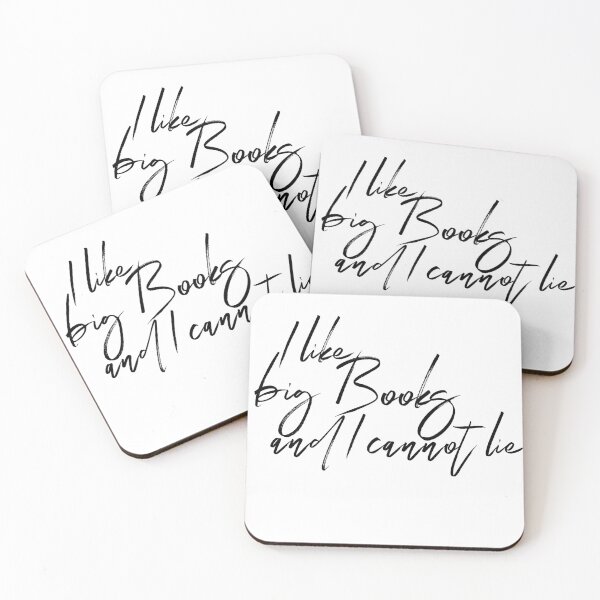 I like
big Books
I like
big Books
and I cannot lie
I like
big Books
and I cannot lie
I like
big Books
and I cannot lie